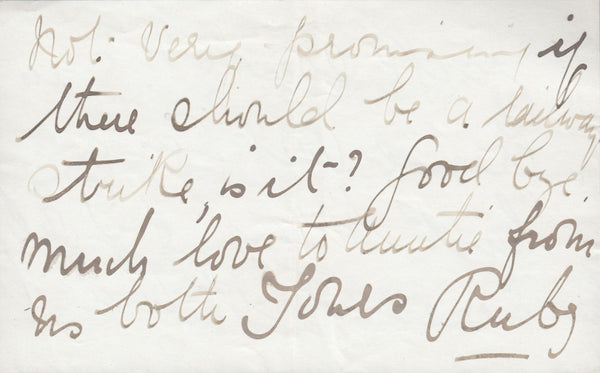 Not very promising if
there should be a railway
strike, is it? Good bye.
much love to Auntie from
us both Yours Ruby